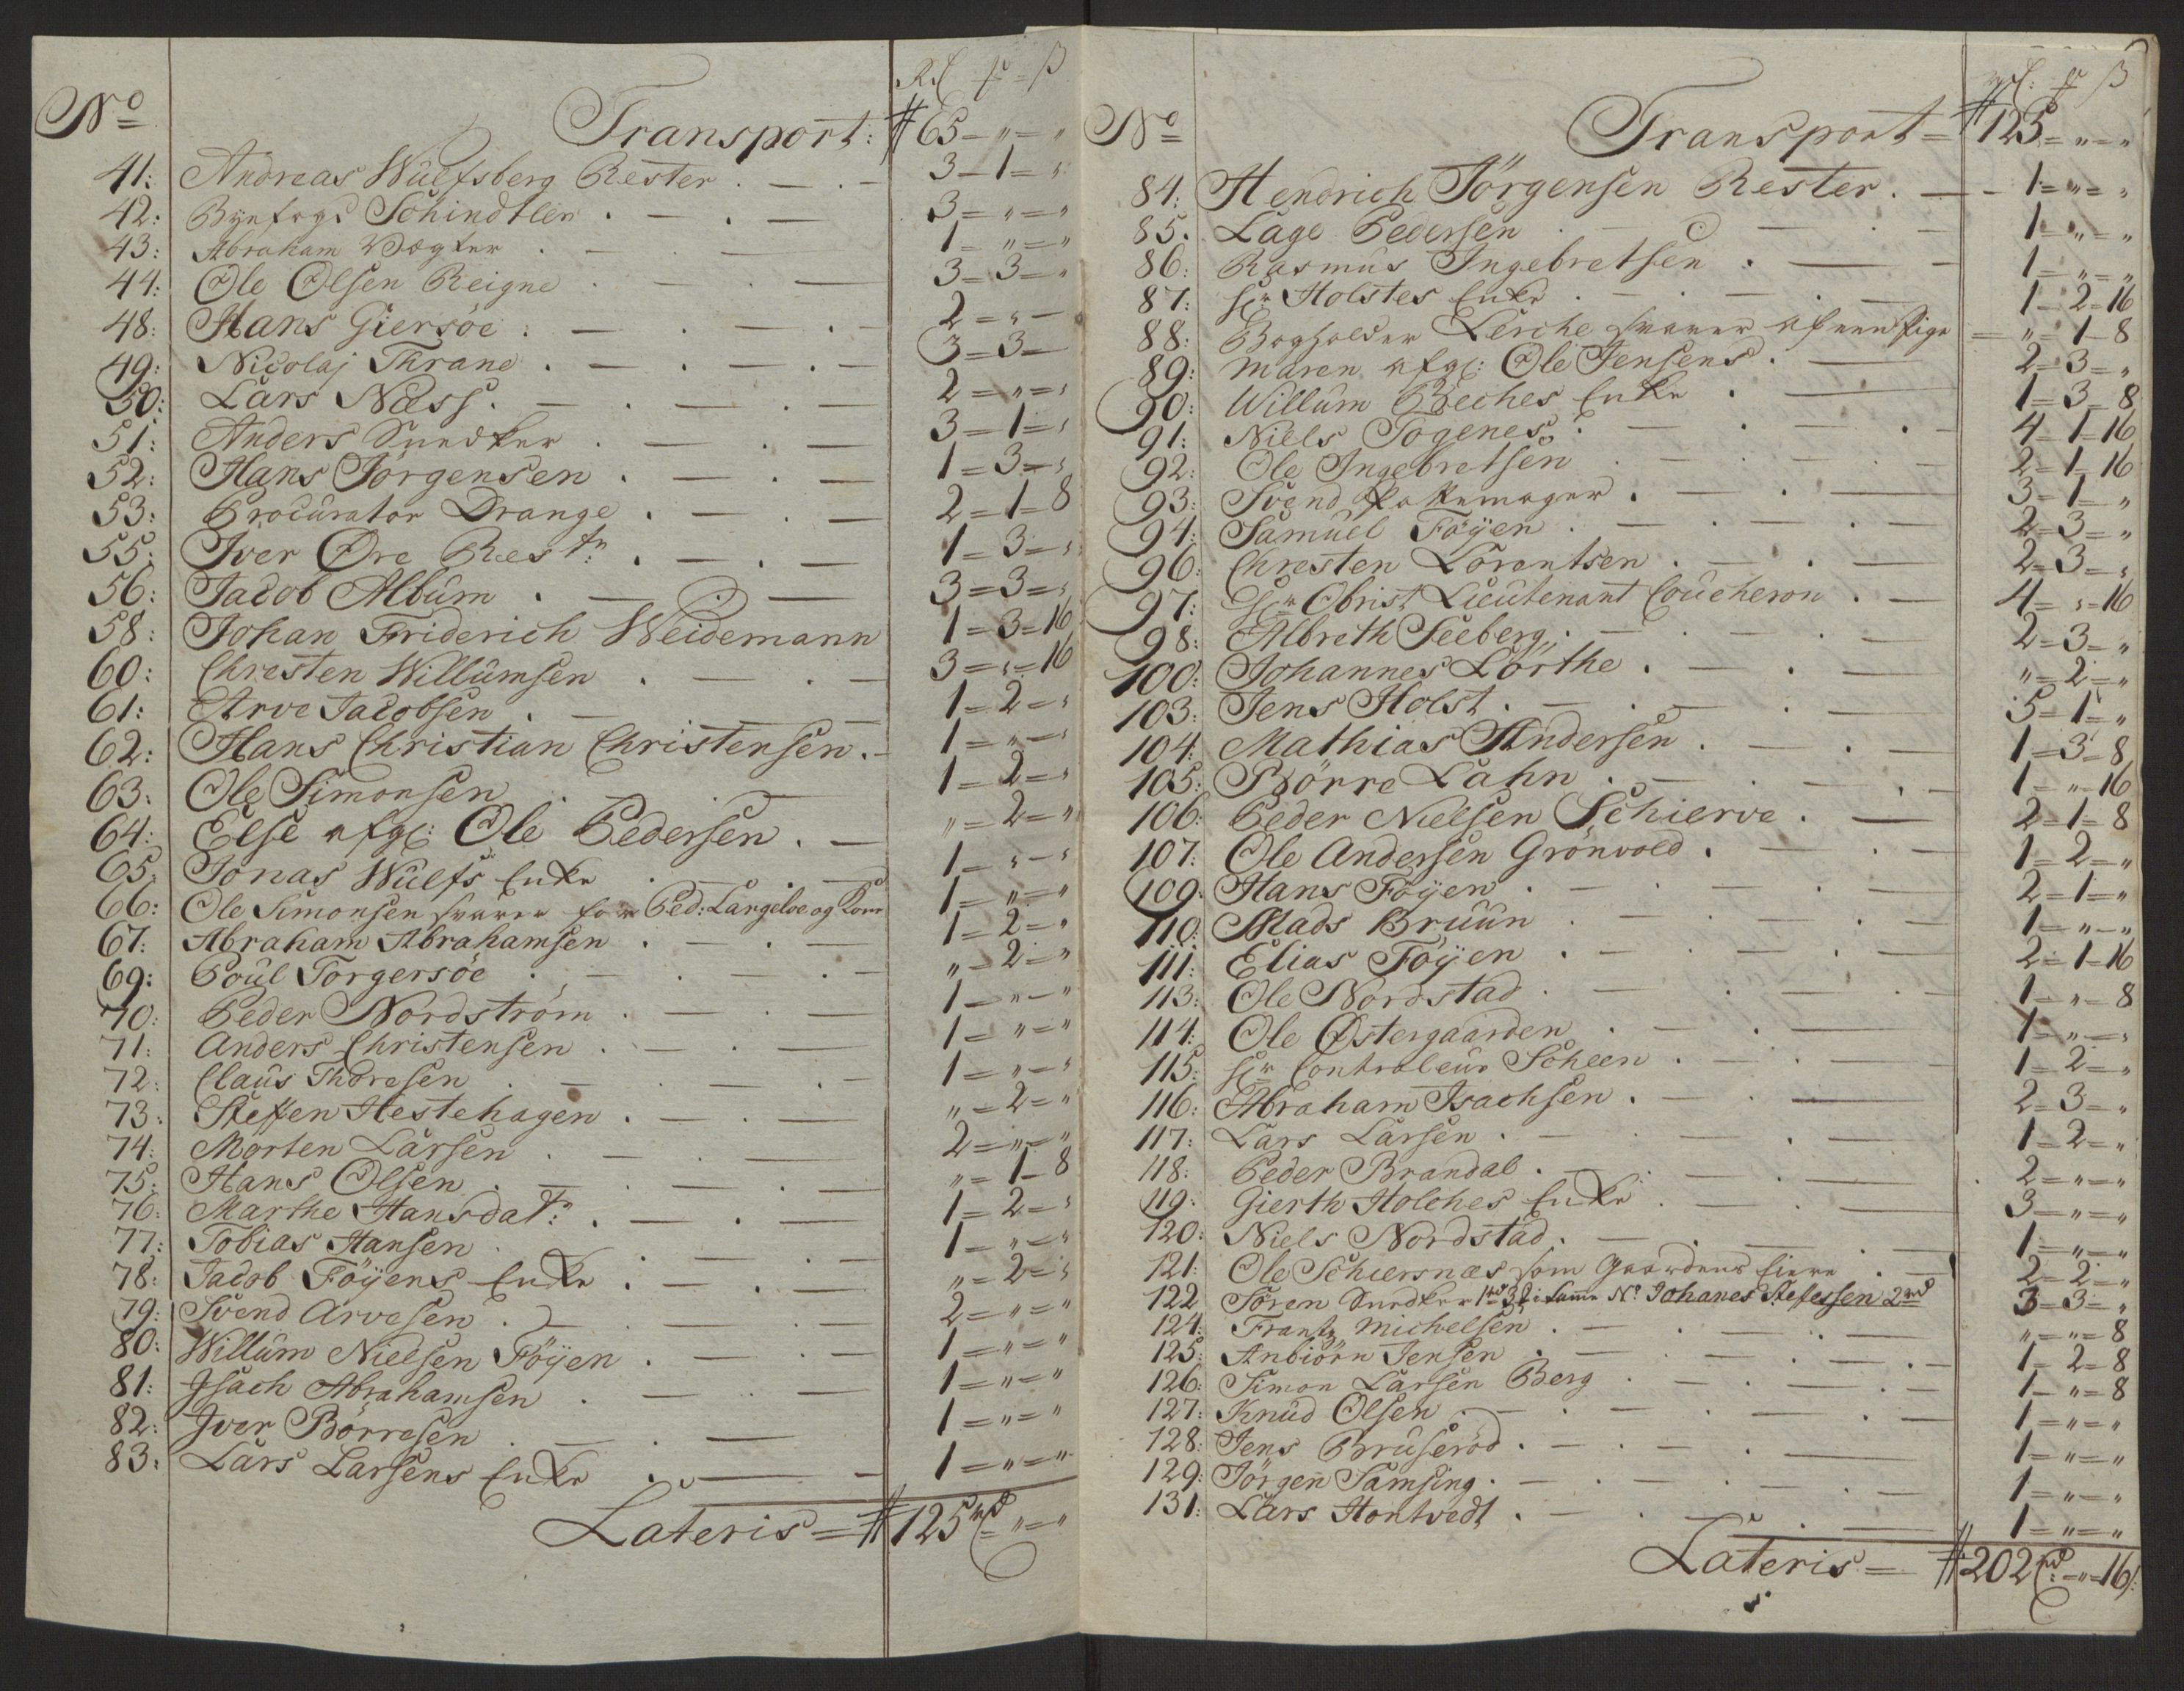 No Rd f ß
Transport: # 65 - " - "
41: Andreas Wulfsberg Rester . — . — 3 - 1 - "
42: Byefogd Schindtler . — . — 3 - " - "
43: Abraham Vægter . — . — 1 - " - "
44: Ole Olsen Reigne . — . — 3 - 3 - "
48: Hans Giersöe . — . — . — 2 - " -
49: Nicolaj Thrane . — . — . — 3 - 3 -
50: Lars Næss . — . — . — 2 = " = "
51: Anders Snedker . — . — 3 - 1 - "
52: Hans Jörgensen . — . — 1 - 3 - "
53: Procurator Drange . — . — 2 - 1 - 8
55: Iver Øre Restr: . — . — 1 - 3 - "
56: Jacob Album . — . — 3 = 3 = "
58: Johan Friderich Weidemann 1 = 3 = 16
60: Christen Willumsen . — . — 3 = " = 16
61: Arve Jacobsen . — . — 1 - 2 - "
62: Hans Christian Christensen . - 1 - " - "
63: Ole Simonsen . — . — 1 - 2 - "
64: Else afg: Ole Pedersen . — " - 2 - "
65: Jonas Wulfs Enke . — . — 1 - " - "
66: Ole Simonsen svarer for Ped: Langeloe og Kone 1 - " - "
67: Abraham Abrahamsen . — . — 1 - 2 - "
69: Poul Torgersöe . — . — . — " - 2 - "
70: Peder Nordström . — . — 1 - " - "
71: Anders Christensen . — . — 1 - " - "
72: Claus Thoresen . — . — . — 1 - " - "
73: Steffen Hestehagen . — . — " - 2 - "
74: Morten Larsen . — . — 2 = " = "
75: Hans Olsen . — . — . — " - 1 - 8
76: Marthe Hansdatr: . — . — 1 - 2 - "
77: Tobias Hansen . — . — 1 - " - "
78: Jacob Föyens Enke . — . — " - 2 - "
79: Svend Arvesen . — . — . — 2 - " - "
80: Willum Nielsen Föyen . — . — 1 - " - "
81: Isach Abrahamsen . — . — 1 - " - "
82: Iver Börresen . — . — 1 - " - "
83: Lars Larsens Enke . — . — 1 - " - "
Lateris = # 125 rd - " - "
No rd: f ß
Transport = # 125 - " - "
84: Hendrich Jörgensen Rester . — 1 - " - "
85. Lage Pedersen . — . — . — 1 - " - "
86: Rasmus Ingebretsen . — - 1 - " - "
87: Sr Holstes Enke . — . — . — 1 - 2 - 16
88: Bogholder Lerche svarer af een Pige — " - 1 - 8
89: Maren afg: Ole Jensens . — 2 - 3 - "
90: Willum Beches Enke . — 1 - 3 - 8
91: Niels Togenes . — . — . - 4 - 1 - 16
92: Ole Ingebretsen . — . — . — 2 - 1 - 16
93: Svend Pakemager . — . — 3 - 1 - "
94: Samuel Föyen . — . — . 2 - 3 - "
96: Christen Lorentsen . — . — 2 - 3 - "
97: Hr Obrist Lieutenant Coucheron . — 4 - " - 16
98: Albreth Seeberg . — . — . — 2 - 3 - "
100: Johannes Lörthe . — . — " - 2 - "
103: Jens Holst . — . — . — 5 - 1 - "
104: Mathias Andersen . — . — 1 - 3 - 8
105: Börre Lahn . — . — . - 1 - " - 16
106: Peder Nielsen Schierve . — 2 - 1 - 8
107: Ole Andersen Grönvold . — . — 1 - 2 - "
109: Hans Föyen . — . — . — 2 - 1 - "
110: Mads Bruun . — . — . — 1 - " - "
111: Elias Föyen . — . — . — 2 - 1 - 16
113: Ole Nordstad . — . — . — 1 - " - 8
114: Ole Østergaarden . — . — 1 - " - "
115: Sr Controleur Scheen . — . — 1 - 2 - "
116: Abraham Isachsen . — . — 2 - 3 - "
117: Lars Larsen . — . — . — 1 - 2 - "
118: Peder Brandal . — . — . — 2 - " - "
119: Gierth Holches Enke . — . — 3 - " - "
120: Niels Nordstad . — . — . — 1 - " - "
121: Ole Schiersnæs som Gaardens Eiere . — 2 - 2 - "
122 Sören Snedker 1rd 3 f: samme No Johanes Stefessen 2rd 3 - 3 - "
124: Frantz Michelsen . — . — . — " - " - 8
125: Anbiörn Jensen . — . — . — 1 - 2 - 8
126: Simon Larsen Berg . — . — 1 - " - 8
127: Knud Olsen . — . — . — 1 - " - "
128: Jens Bruseröd . — . — . — 1 - " - "
129: Jörgen Samsing . — . — . — 1 - " - "
131: Lars Hontvedt . — . — . — 1 - " - "
Lateris = # 202 rd: - " - 16 ß: